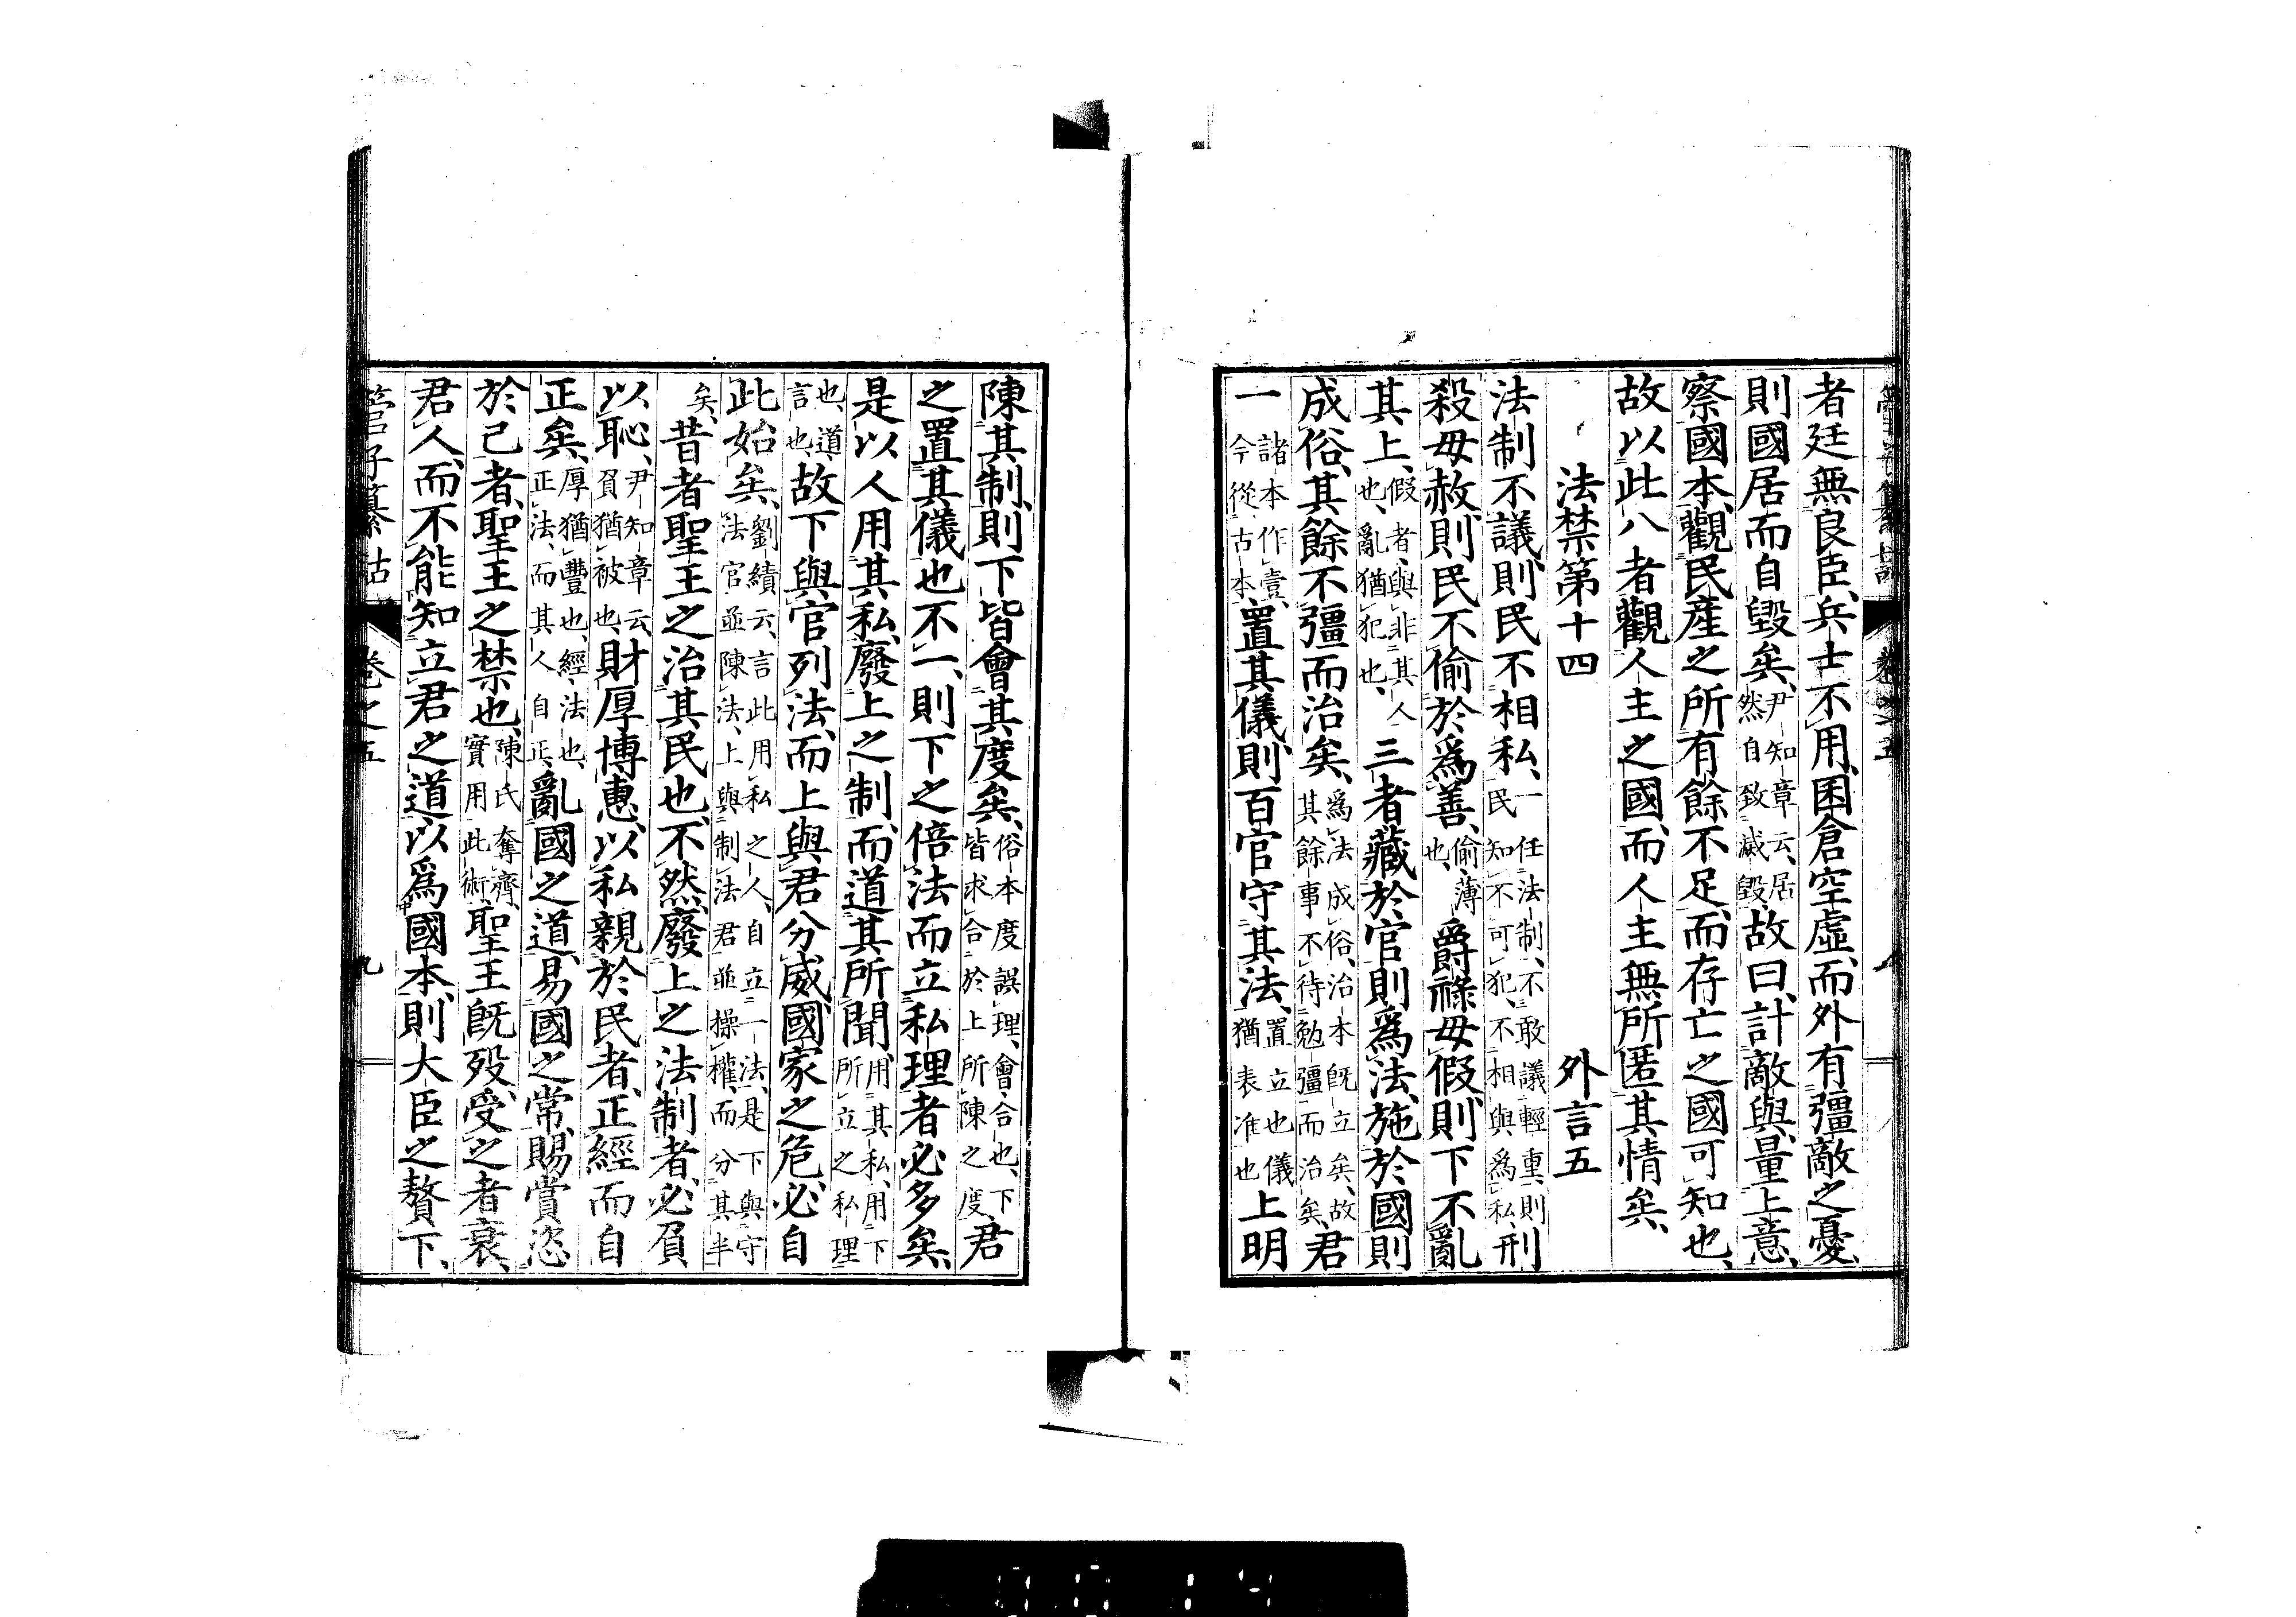 者、廷無良臣、兵士不用、囷倉空虛、而外有彊敵之憂、
則國居而自毀矣、尹知章云、居然自致滅毀、故曰、計敵與、量上意、
察國本、觀民產之所有餘不足、而存亡之國可知也、
故以此八者觀人主之國、而人主無所匿其情矣、
法禁第十四 外言五
法制不議、則民不相私、一任法制、不敢議輕重、則民知不可犯、不相與爲私、刑
殺毋赦、則民不偷於爲善、偷、薄也、爵祿毋假、則下不亂
其上、假者、與非其人也、亂猶犯也、三者藏於官則爲法、施於國則
成俗、其餘不彊而治矣、爲法成俗、治本既立矣、故其餘事不待勉彊而治矣、君
一諸本作壹、今從古本、置其儀、則百官守其法、置立也儀猶表准也上明
陳其制、則下皆會其度矣、俗本度誤理、會、合也、下皆求合於上所陳之度、君
之置其儀也不一、則下之倍法而立私理者必多矣、
是以人用其私、廢上之制、而道其所聞、用其私、用下所立之私理
也、道、言也、故下與官列法、而上與君分威、國家之危、必自
此始矣、劉績云、言此用私之人、自立一法、是下與守法官並陳法、上與制法君並操權、而分其半
矣、昔者聖王之治其民也、不然、廢上之法制者、必負
以恥、尹知章云、負猶被也、財厚博惠、以私親於民者、正經而自
正矣、厚猶豐也、經、法也、正法、而其人自正、亂國之道、易國之常、賜賞恣
於己者、聖王之禁也、陳氏奪齊、實用此術、聖王既歿、受之者衰、
君人、而不能知立君之道、以爲國本、則大臣之贅下、
管子纂詁 卷之五 九